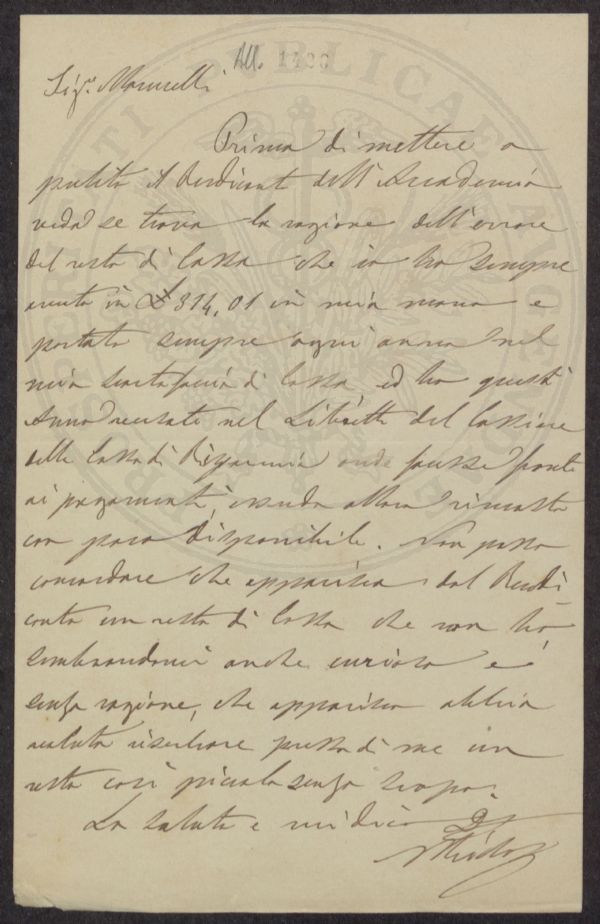 All. 1426
Sigr. Marucelli
Prima di mettere a
pulito il Rendiconto dell'Accademia
veda se trova la ragione dell'errore
del resto di Cassa che io ho sempre
avuto in £ 314,01 in mia mano e
portato sempre ogni anno nel
mio di Cassa ed ho questo
Anno versato nel Libretto del Cassiere
della Cassa di Risparmio onde fare fronte
ai pagamenti, essendo allora rimasto
con poco disponibile. Non posso
concordare che apparisca dal Rendi
conto un resto di Cassa che non ho,
sembrandomi anche curioso e
senza ragione, che apparisca abbia
voluto riserbare presso di me un
resto così piccolo senza scopo.
La saluto e mi dico
PROSPERITATI PUBLICAE AUGENDAE